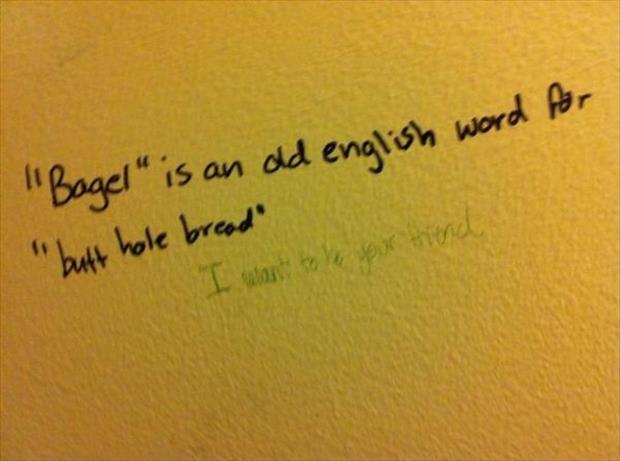 "Bagel" is an old english word for
"butt hole bread"
I want to be your friend